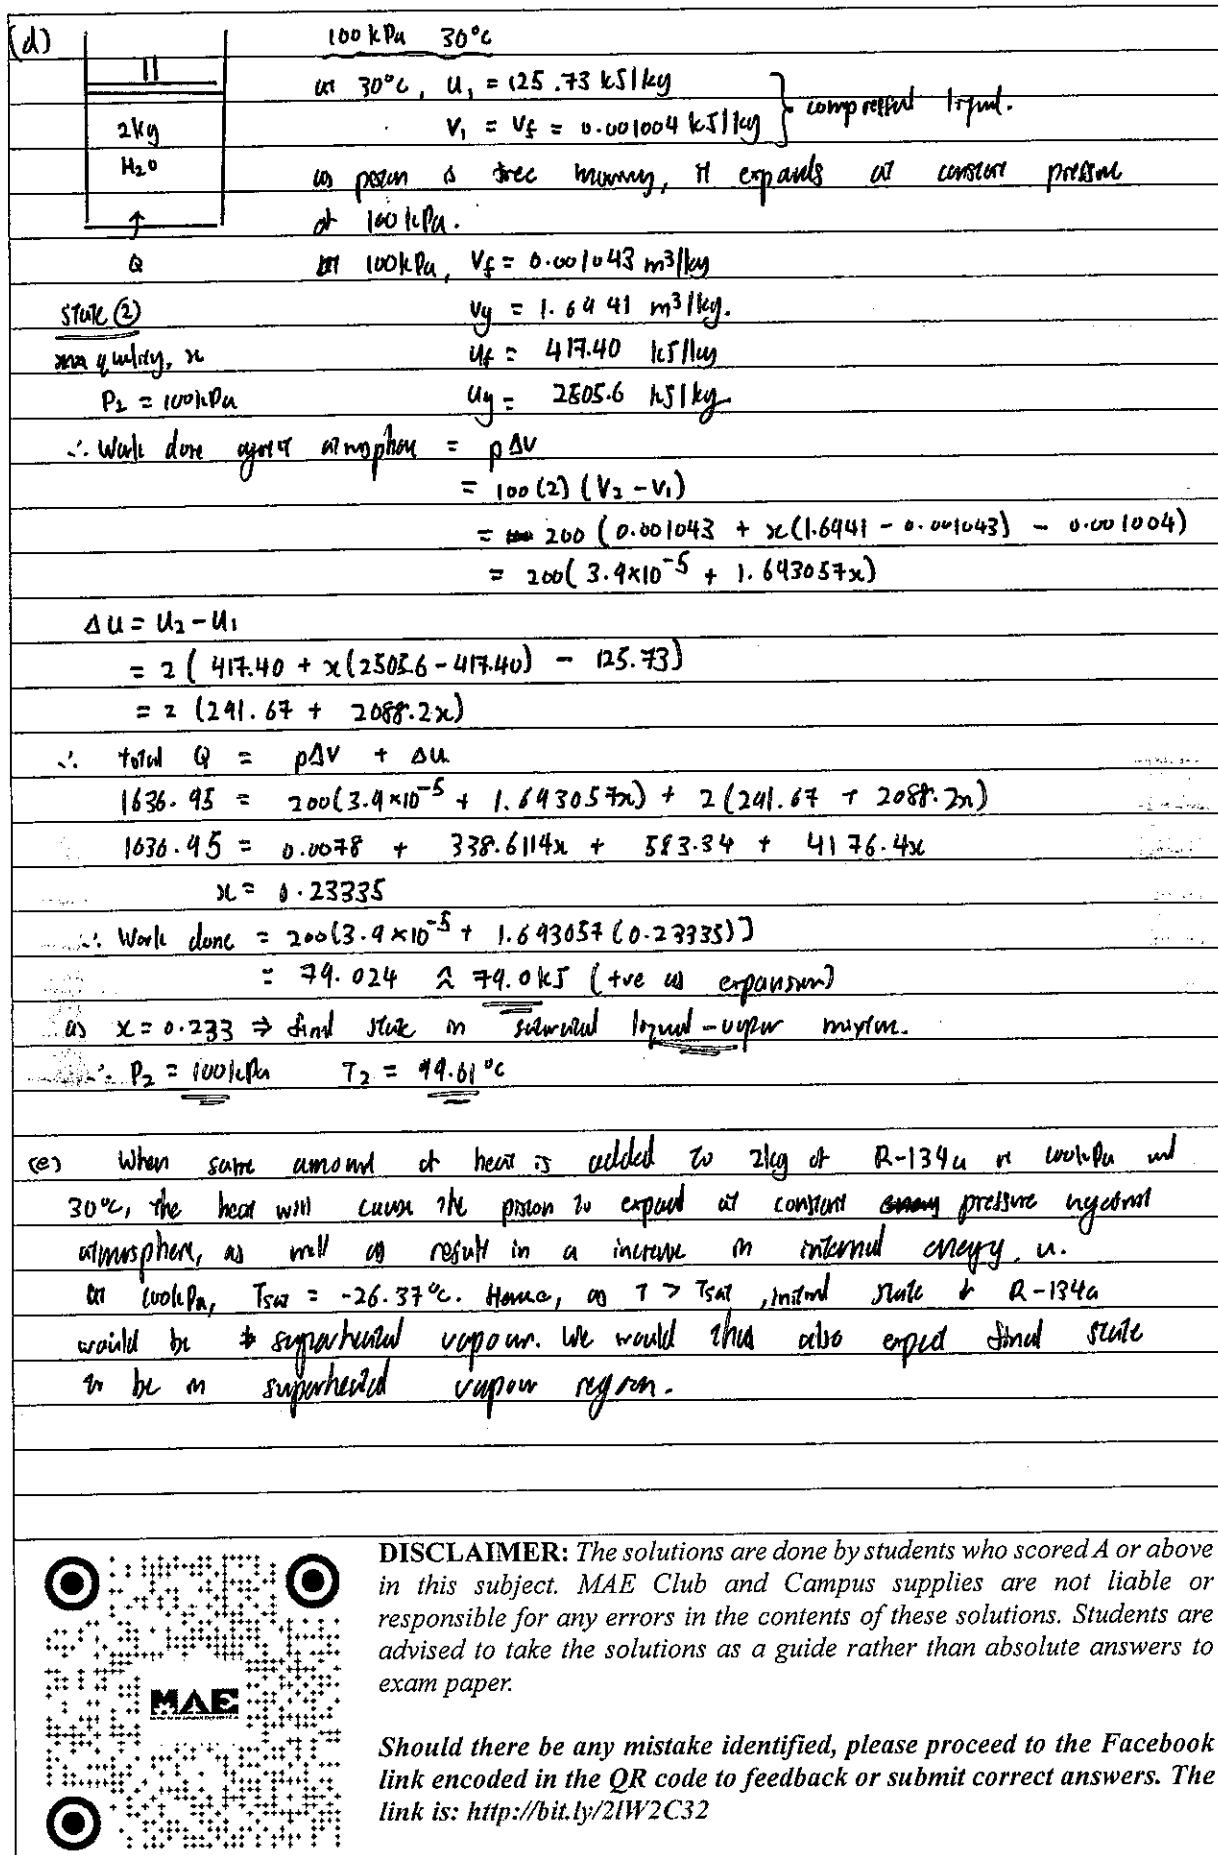 (d)
100 kPa 30°C
at 30°C, u₁ = 125.73 kJ/kg
V₁ = Vf = 0.001004 kJ/kg } compressed liquid.
2kg
H₂O
as piston is free moving, it expands at constant pressure
of 100 kPa.
Q
at 100kPa, Vf = 0.001043 m³/kg
state ②
Vg = 1.6941 m³/kg.
quality, x
uf = 417.40 kJ/kg
P₂ = 100kPa
ug = 2505.6 kJ/kg
∴ Work done against atmosphere = pΔV
= 100(2)(V₂ - V₁)
= 200 (0.001043 + x(1.6941 - 0.001043) - 0.001004)
= 200(3.9×10⁻⁵ + 1.693057x)
Δu = u₂ - u₁
= 2 (417.40 + x(2505.6 - 417.40) - 125.73)
= 2 (291.67 + 2088.2x)
∴ total Q = pΔV + Δu
1636.95 = 200(3.9×10⁻⁵ + 1.693057x) + 2(291.67 + 2088.2x)
1636.95 = 0.0078 + 338.6114x + 583.34 + 4176.4x
x = 0.23335
∴ Work done = 200(3.9×10⁻⁵ + 1.693057(0.23335))
= 79.024 ≈ 79.0 kJ (+ve as expansion)
as x = 0.233 ⇒ final state in saturated liquid-vapor mixture.
∴ P₂ = 100kPa T₂ = 99.61°C
(e) When same amount of heat is added to 2kg of R-134a at 100kPa and
30°C, the heat will cause the piston to expand at constant pressure against
atmosphere, as well as result in a increase in internal energy, u.
at 100kPa, Tsat = -26.37°C. Hence, as T > Tsat, initial state of R-134a
would be superheated vapour. We would thus also expect final state
to be in superheated vapour region.
MAE
DISCLAIMER: The solutions are done by students who scored A or above
in this subject. MAE Club and Campus supplies are not liable or
responsible for any errors in the contents of these solutions. Students are
advised to take the solutions as a guide rather than absolute answers to
exam paper.
Should there be any mistake identified, please proceed to the Facebook
link encoded in the QR code to feedback or submit correct answers. The
link is: http://bit.ly/2lW2C32